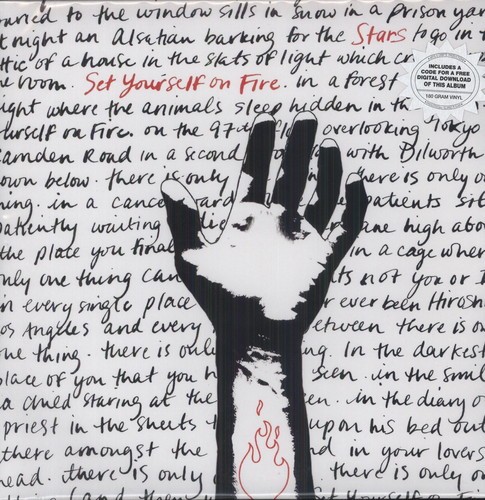 buried to the window sills in snow in a prison yard
at night an Alsatian barking for the Stars to go in t
ttic of a house in the slats of light which cr
the room. Set Yourself on Fire. in a forest
ight where the animals sleep hidden in th
urself on Fire. on the 97th floor overlooking Tokyo
Camden Road in a second with Dilworth
own below. there is only there is only o
hing. in a cance ward where patients sit
patiently waiting die ane high abo
the place you final in a cage wher
only one thing can ts not you or I
in every single place r ever been Hirosh
Los Angeles and every etween there is o
one thing. there is only ng. In the darkest
place of you that you h seen. in the smil
a child staring at the en. in the diary o
priest in the sheets upon his bed out
there amongst the in your lovers
head. there is only there is only o
INCLUDES A
CODE FOR A FREE
DIGITAL DOWNLOAD
OF THIS ALBUM
180 GRAM VINYL